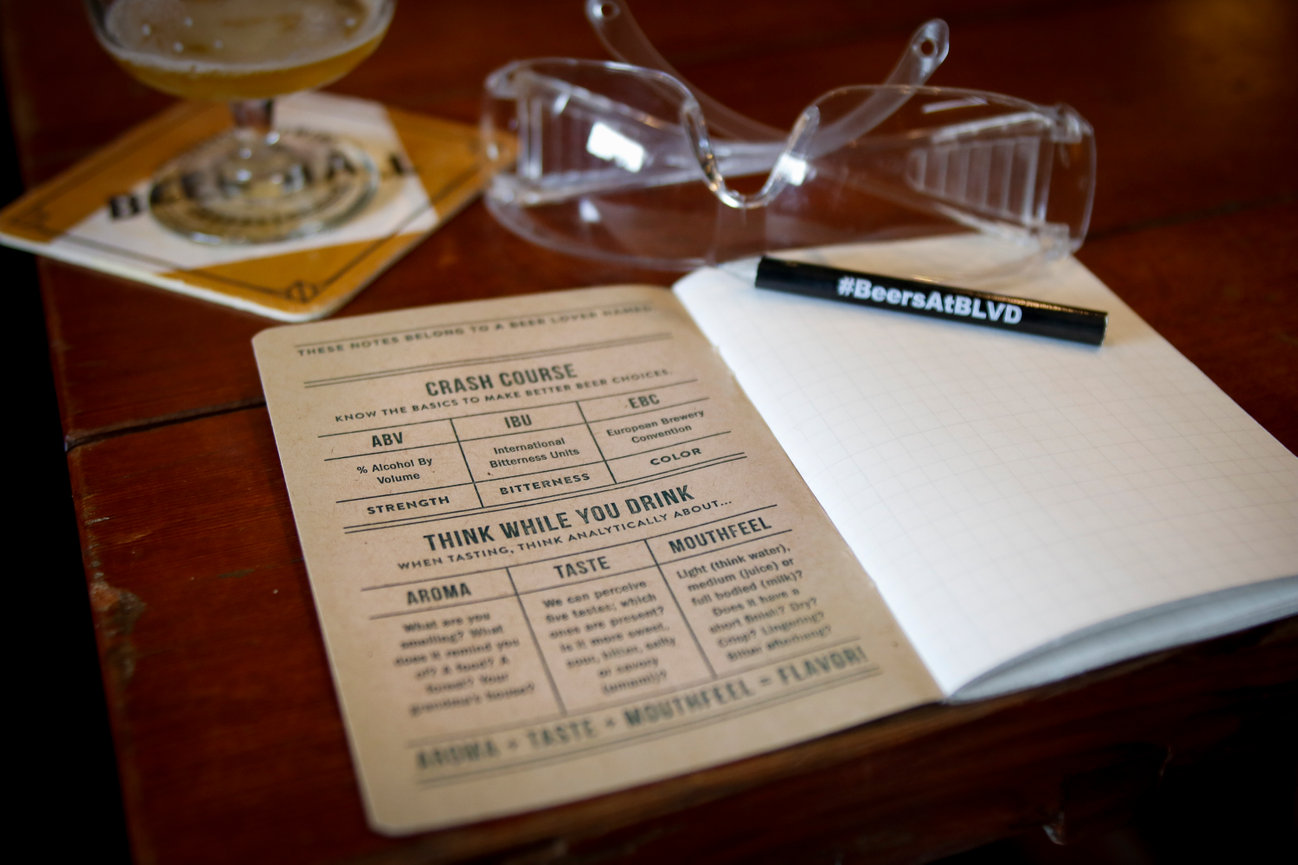 BEER HALL
#BeersAtBLVD
THESE NOTES BELONG TO A BEER LOVER NAMED
CRASH COURSE
KNOW THE BASICS TO MAKE BETTER BEER CHOICES.
ABV
% Alcohol By
Volume
STRENGTH
IBU
International
Bitterness Units
BITTERNESS
EBC
European Brewery
Convention
COLOR
THINK WHILE YOU DRINK
WHEN TASTING, THINK ANALYTICALLY ABOUT...
AROMA
What are you
smelling? What
does it remind you
of? A food? A
forest? Your
grandma's house?
TASTE
We can perceive
five tastes; which
ones are present?
Is it more sweet,
sour, bitter, salty
or savory
(umami)?
MOUTHFEEL
Light (think water),
medium (juice) or
full bodied (milk)?
Does it have a
short finish? Dry?
Crisp? Lingering?
Bitter afterbang?
AROMA + TASTE + MOUTHFEEL = FLAVOR!